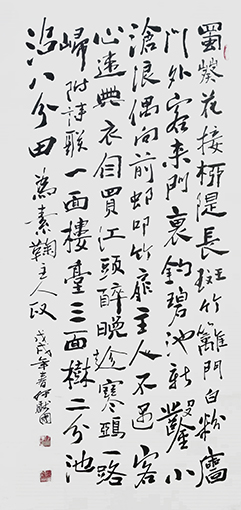 蜀葵花接柳隄長斑竹籬門白粉牆
門外客来門裏釣碧池新鑿小
滄浪偶向前邨叩竹扉主人不遇客
心違典衣自買江頭醉晚趁寒鴉一路
歸附詩聯一面樓臺三面樹二分池
沼八分田為素鞠主人政戊戌年春